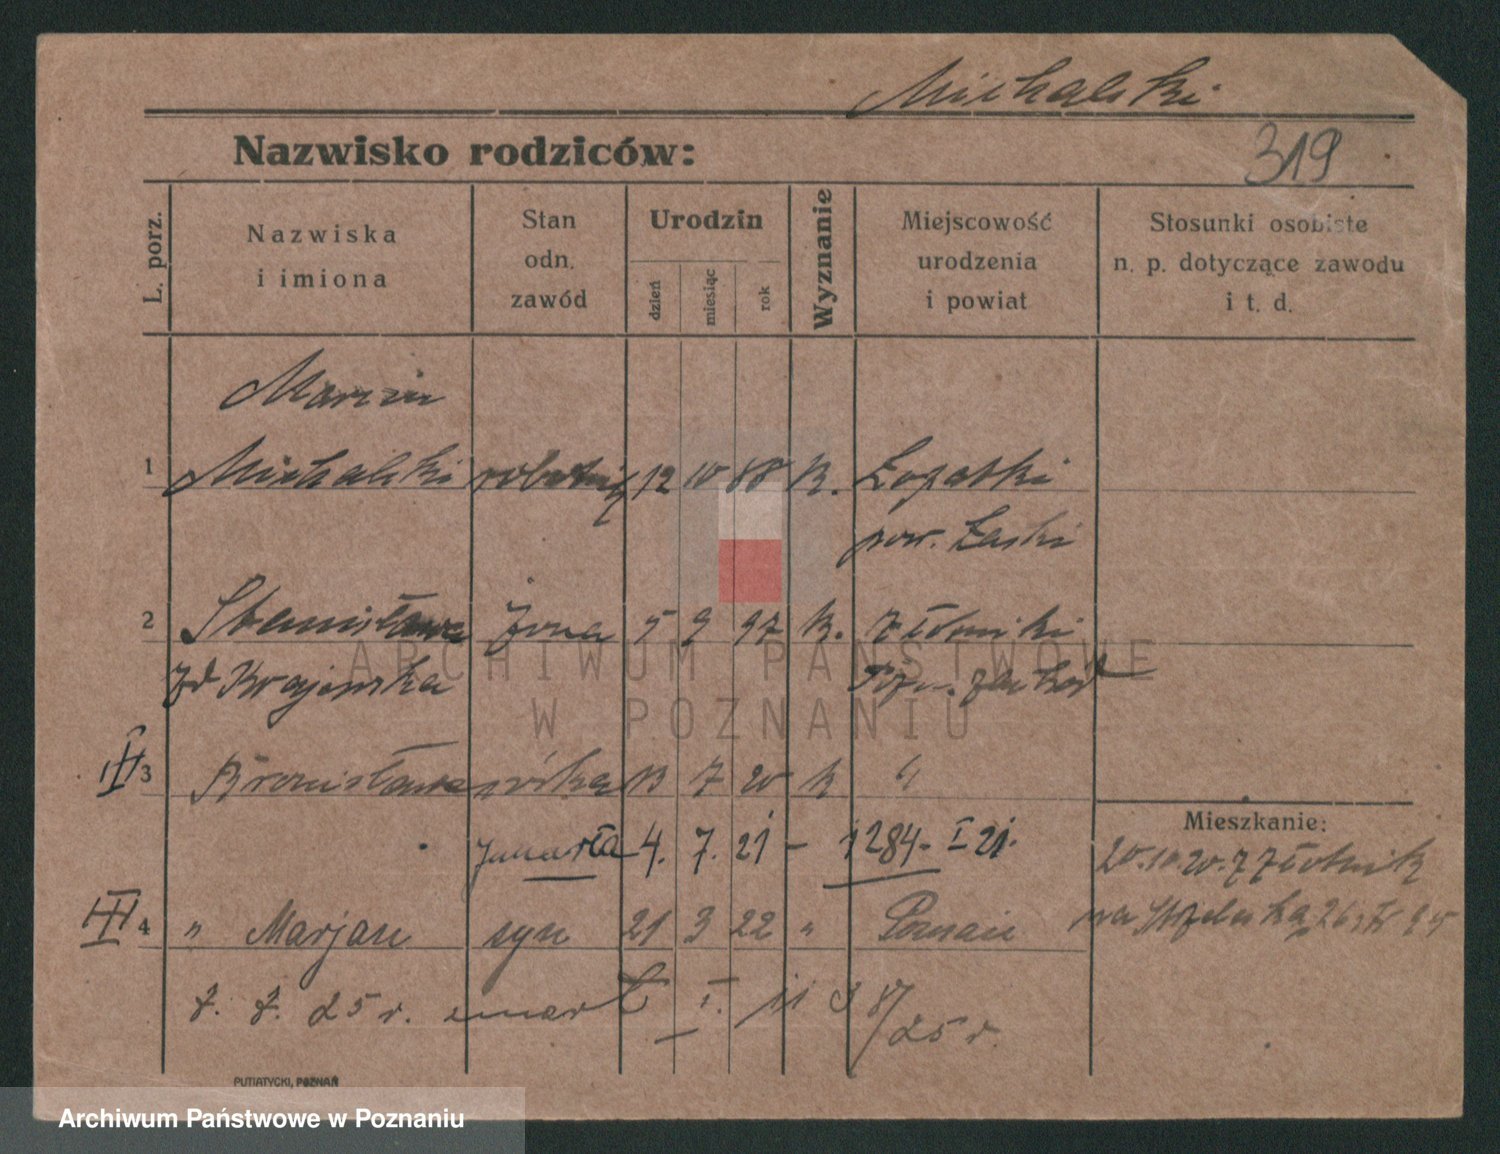 Michalski
319
Nazwisko rodziców:
L. porz.
Nazwiska
i imiona
Stan
odn.
zawód
Urodzin
dzień
miesiąc
rok
Wyznanie
Miejscowość
urodzenia
i powiat
Stosunki osobiste
n. p. dotyczące zawodu
i t. d.
Marcin
1 Michalski robotnik 12 10 88 K. Łopatki
pow. Łaski
2 Stanisława żona 5 9 97 K. Złotniki
zd Krajewska Pozn. zachod
III 3 Bronisława córka 13 7 20 K "
zmarła 4. 7. 21 - 1284. I 21.
Mieszkanie:
20.10.20. z Złotnik
III 4 " Marjan syn 21 3 22 " Poznań
na Strzelecka 26
25 r. zmarł I. 87/25 r.
PUTIATYCKI, POZNAŃ
ARCHIWUM PAŃSTWOWE
W POZNANIU
Archiwum Państwowe w Poznaniu